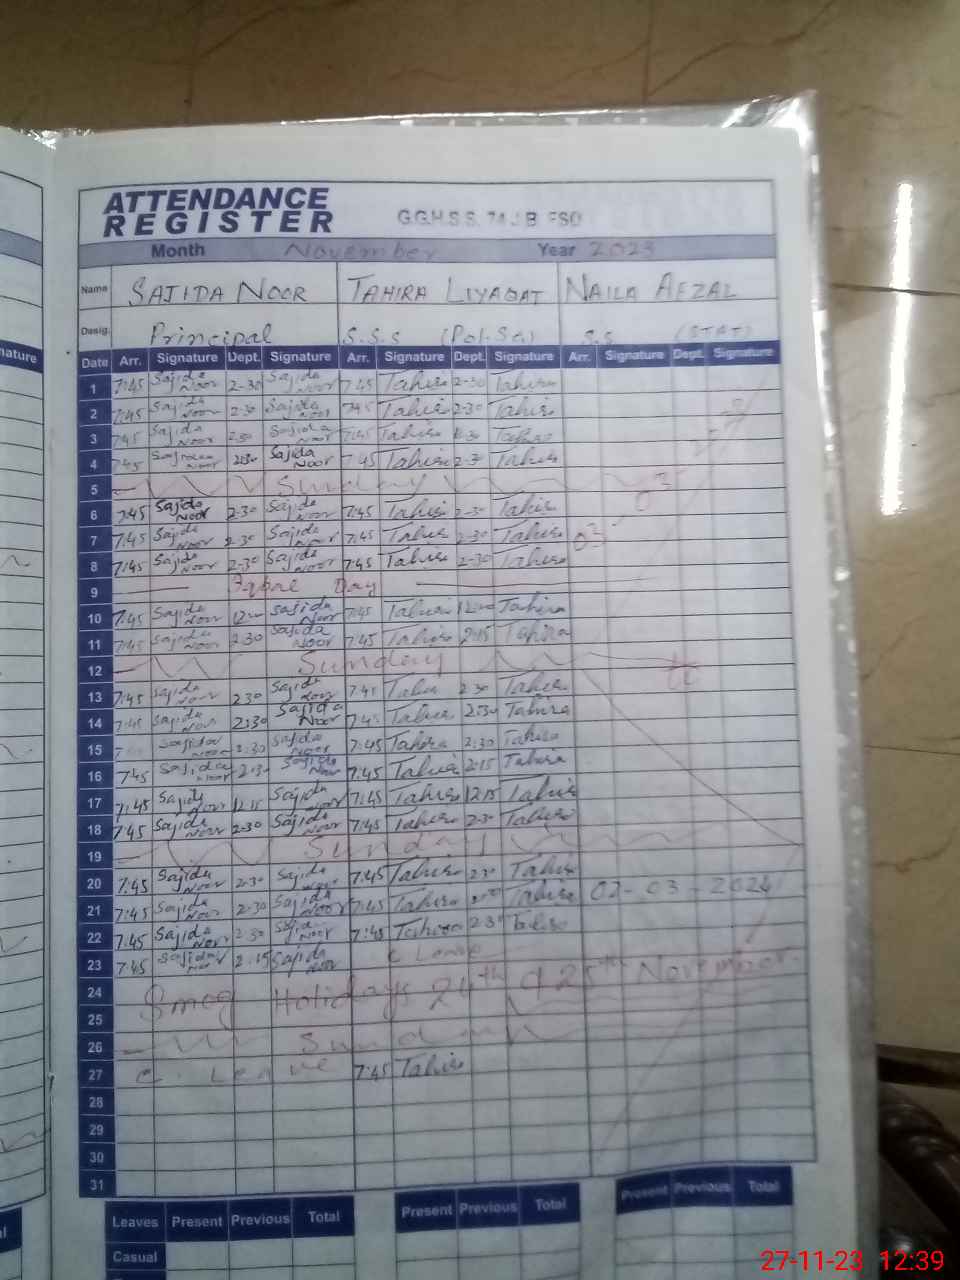 ATTENDANCE
REGISTER
G.G.H.S.S. 74 J.B FSD
Month November Year 2023
Name SAJIDA NOOR TAHIRA LIYAQAT NAILA AFZAL
Desig. Principal S.S.S (Pol-Sc) S.S (STAT)
Date Arr. Signature Dept. Signature Arr. Signature Dept. Signature Arr. Signature Dept. Signature
1 7:45 Sajida Noor 2-30 Sajida Noor 7:45 Tahira 2-30 Tahira
2 7:45 Sajida Noor 2-30 Sajida Noor 7:45 Tahira 2-30 Tahira
3 7:45 Sajida Noor 2:30 Sajida Noor 7:45 Tahira Tahira
4 7:45 Sajida Noor 2:30 Sajida Noor 7:45 Tahira 2-30 Tahira
5 Sunday
6 7:45 Sajida Noor 2-30 Sajida Noor 7:45 Tahira 2-30 Tahira
7 7:45 Sajida Noor 2-30 Sajida Noor 7:45 Tahira 2-30 Tahira
8 7:45 Sajida Noor 2-30 Sajida Noor 7:45 Tahira 2-30 Tahira
9 Iqbal Day
10 7:45 Sajida Noor Sajida Noor 7:45 Tahira Tahira
11 7:45 Sajida Noor 2:30 Sajida Noor 7:45 Tahira 2:15 Tahira
12 Sunday
13 7:45 Sajida Noor 2:30 Sajida Noor 7:45 Tahira 2:30 Tahira
14 7:45 Sajida Noor 2:30 Sajida Noor 7:45 Tahira 2:30 Tahira
15 Sajida Noor 2:30 Sajida Noor 7:45 Tahira 2:30 Tahira
16 7:45 Sajida Noor 2:30 Sajida Noor 7:45 Tahira 2:15 Tahira
17 7:45 Sajida Noor 12:15 Sajida Noor 7:45 Tahira 12:15 Tahira
18 7:45 Sajida Noor 2-30 Sajida Noor 7:45 Tahira 2-30 Tahira
19 Sunday
20 7:45 Sajida Noor 2-30 Sajida Noor 7:45 Tahira 2:30 Tahira
21 7:45 Sajida Noor 2-30 Sajida Noor 7:45 Tahira Tahira 02-03-2024
22 7:45 Sajida Noor 2-30 Sajida Noor 7:45 Tahira 2-30 Tahira
23 7:45 Sajida Noor 2:15 Sajida Noor C Leave
24 Smog Holidays 24th & 25th November
25
26 Sunday
27 C. Leave 7:45 Tahira
28
29
30
31
Leaves Present Previous Total Present Previous Total Present Previous Total
Casual
27-11-23 12:39